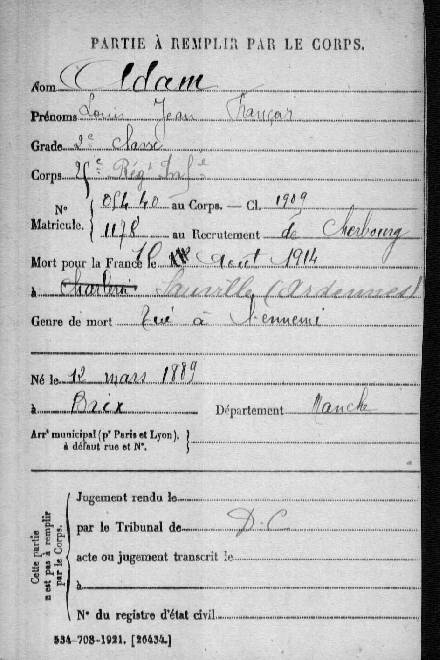 PARTIE À REMPLIR PAR LE CORPS.
Nom Adam
Prénoms Louis Jean François
Grade 2e classe
Corps 25e Régt Infie
No 054 40 au Corps. — Cl. 1909
Matricule. 1178 au Recrutement de Cherbourg
Mort pour la France le Août 1914
à Charleroi Sauville (Ardennes)
Genre de mort Tué à l'ennemi
Né le 12 mars 1889
à Brix Département Manche
Arrt municipal (pr Paris et Lyon),
à défaut rue et No.
Cette partie n'est pas à remplir par le Corps.
Jugement rendu le
par le Tribunal de D.C
acte ou jugement transcrit le
à
No du registre d'état civil
534-708-1921. [26434.]